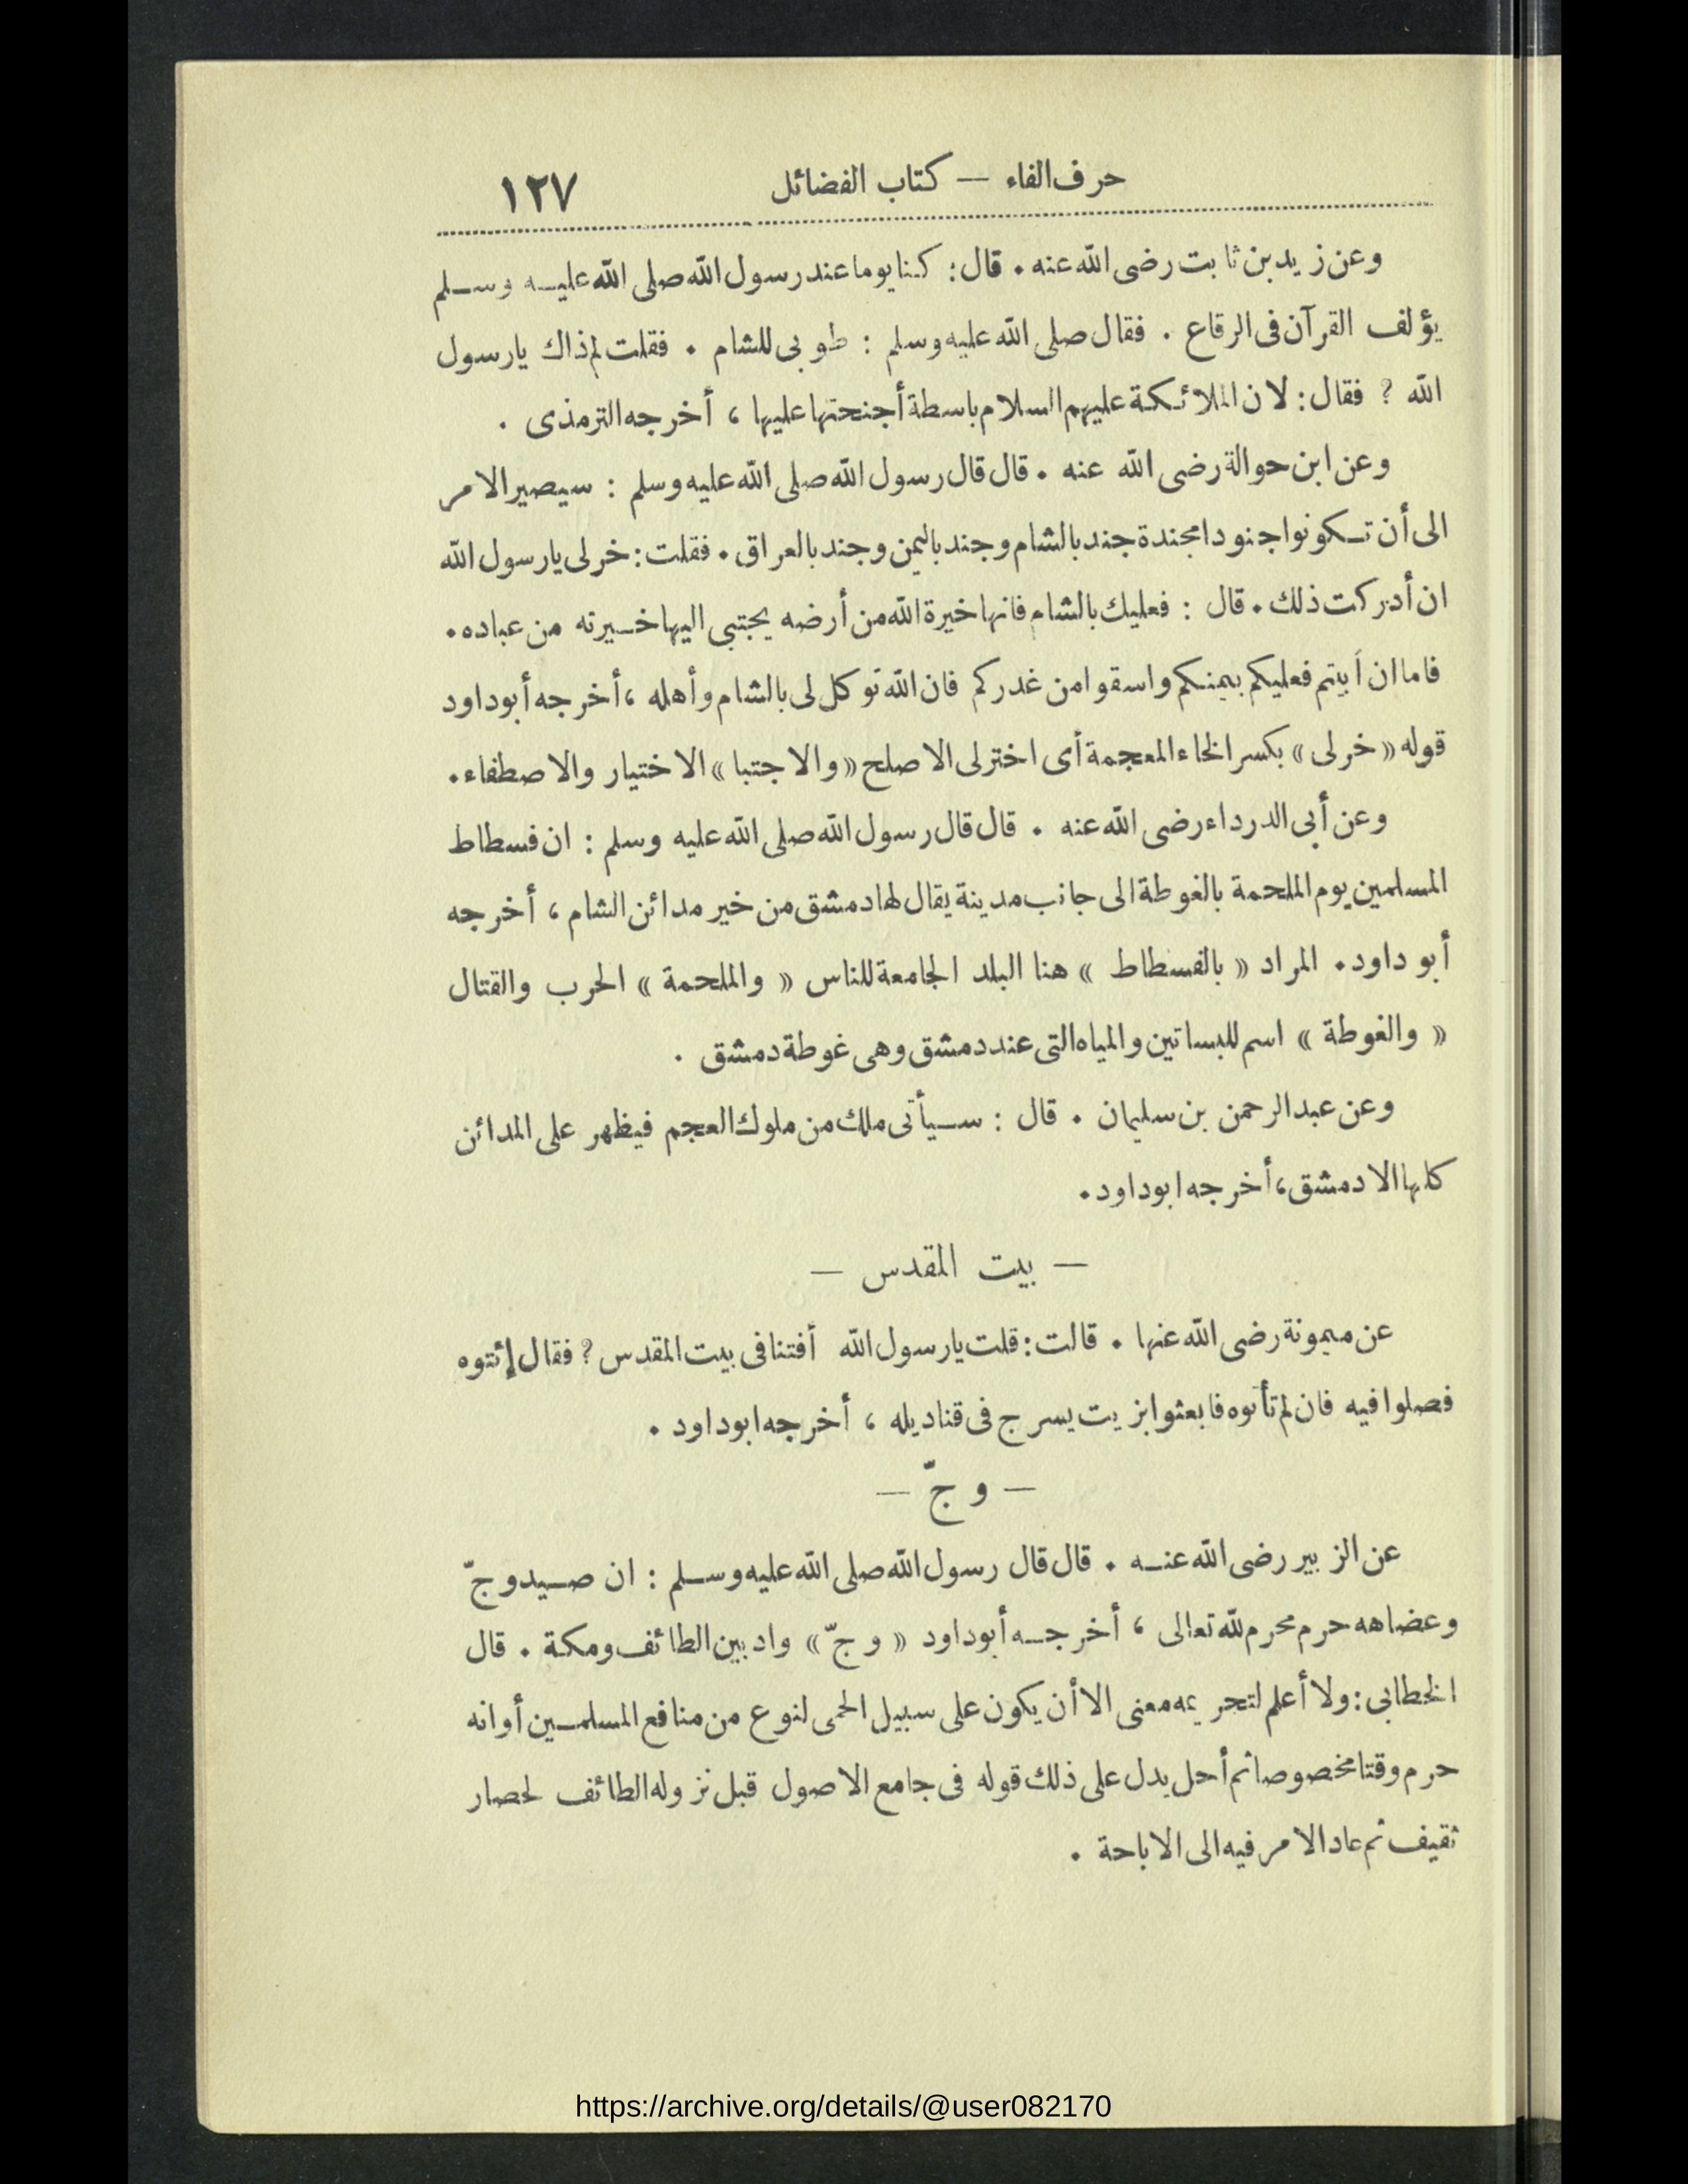 حرف الفاء — كتاب الفضائل ١٢٧
وعن زيد بن ثابت رضى الله عنه . قال : كنا يوما عند رسول الله صلى الله عليه وسلم
يؤلف القرآن فى الرقاع . فقال صلى الله عليه وسلم : طوبى للشام . فقلت لم ذاك يارسول
الله ? فقال : لان الملائكة عليهم السلام باسطة أجنحتها عليها ، أخرجه الترمذى .
وعن ابن حوالة رضى الله عنه . قال قال رسول الله صلى الله عليه وسلم : سيصير الامر
الى أن تكونوا جنودا مجندة جند بالشام وجند باليمن وجند بالعراق . فقلت : خر لى يارسول الله
ان أدركت ذلك . قال : فعليك بالشام فانها خيرة الله من أرضه يجتبى اليها خيرته من عباده .
فاما ان أبيتم فعليكم بيمنكم واسقوا من غدركم فان الله توكل لى بالشام وأهله ، أخرجه أبوداود
قوله « خر لى » بكسر الخاء المعجمة أى اختر لى الاصلح « والاجتبا » الاختيار والاصطفاء .
وعن أبى الدرداء رضى الله عنه . قال قال رسول الله صلى الله عليه وسلم : ان فسطاط
المسلمين يوم الملحمة بالغوطة الى جانب مدينة يقال لها دمشق من خير مدائن الشام ، أخرجه
أبو داود . المراد « بالفسطاط » هنا البلد الجامعة للناس « والملحمة » الحرب والقتال
« والغوطة » اسم للبساتين والمياه التى عند دمشق وهى غوطة دمشق .
وعن عبد الرحمن بن سليمان . قال : سيأتى ملك من ملوك العجم فيظهر على المدائن
كلها الا دمشق ، أخرجه ابوداود .
— بيت المقدس —
عن ميمونة رضى الله عنها . قالت : قلت يارسول الله أفتنا فى بيت المقدس ? فقال إئتوه
فصلوا فيه فان لم تأتوه فابعثوا بزيت يسرج فى قناديله ، أخرجه ابوداود .
— وجّ —
عن الزبير رضى الله عنه . قال قال رسول الله صلى الله عليه وسلم : ان صيد وجّ
وعضاهه حرم محرم لله تعالى ، أخرجه أبوداود « وجّ » واد بين الطائف ومكة . قال
الخطابى : ولا أعلم لتحريمه معنى الا أن يكون على سبيل الحمى لنوع من منافع المسلمين أوانه
حرم وقتا مخصوصا ثم أحل يدل على ذلك قوله فى جامع الاصول قبل نزوله الطائف لحصار
ثقيف ثم عاد الامر فيه الى الاباحة .
https://archive.org/details/@user082170